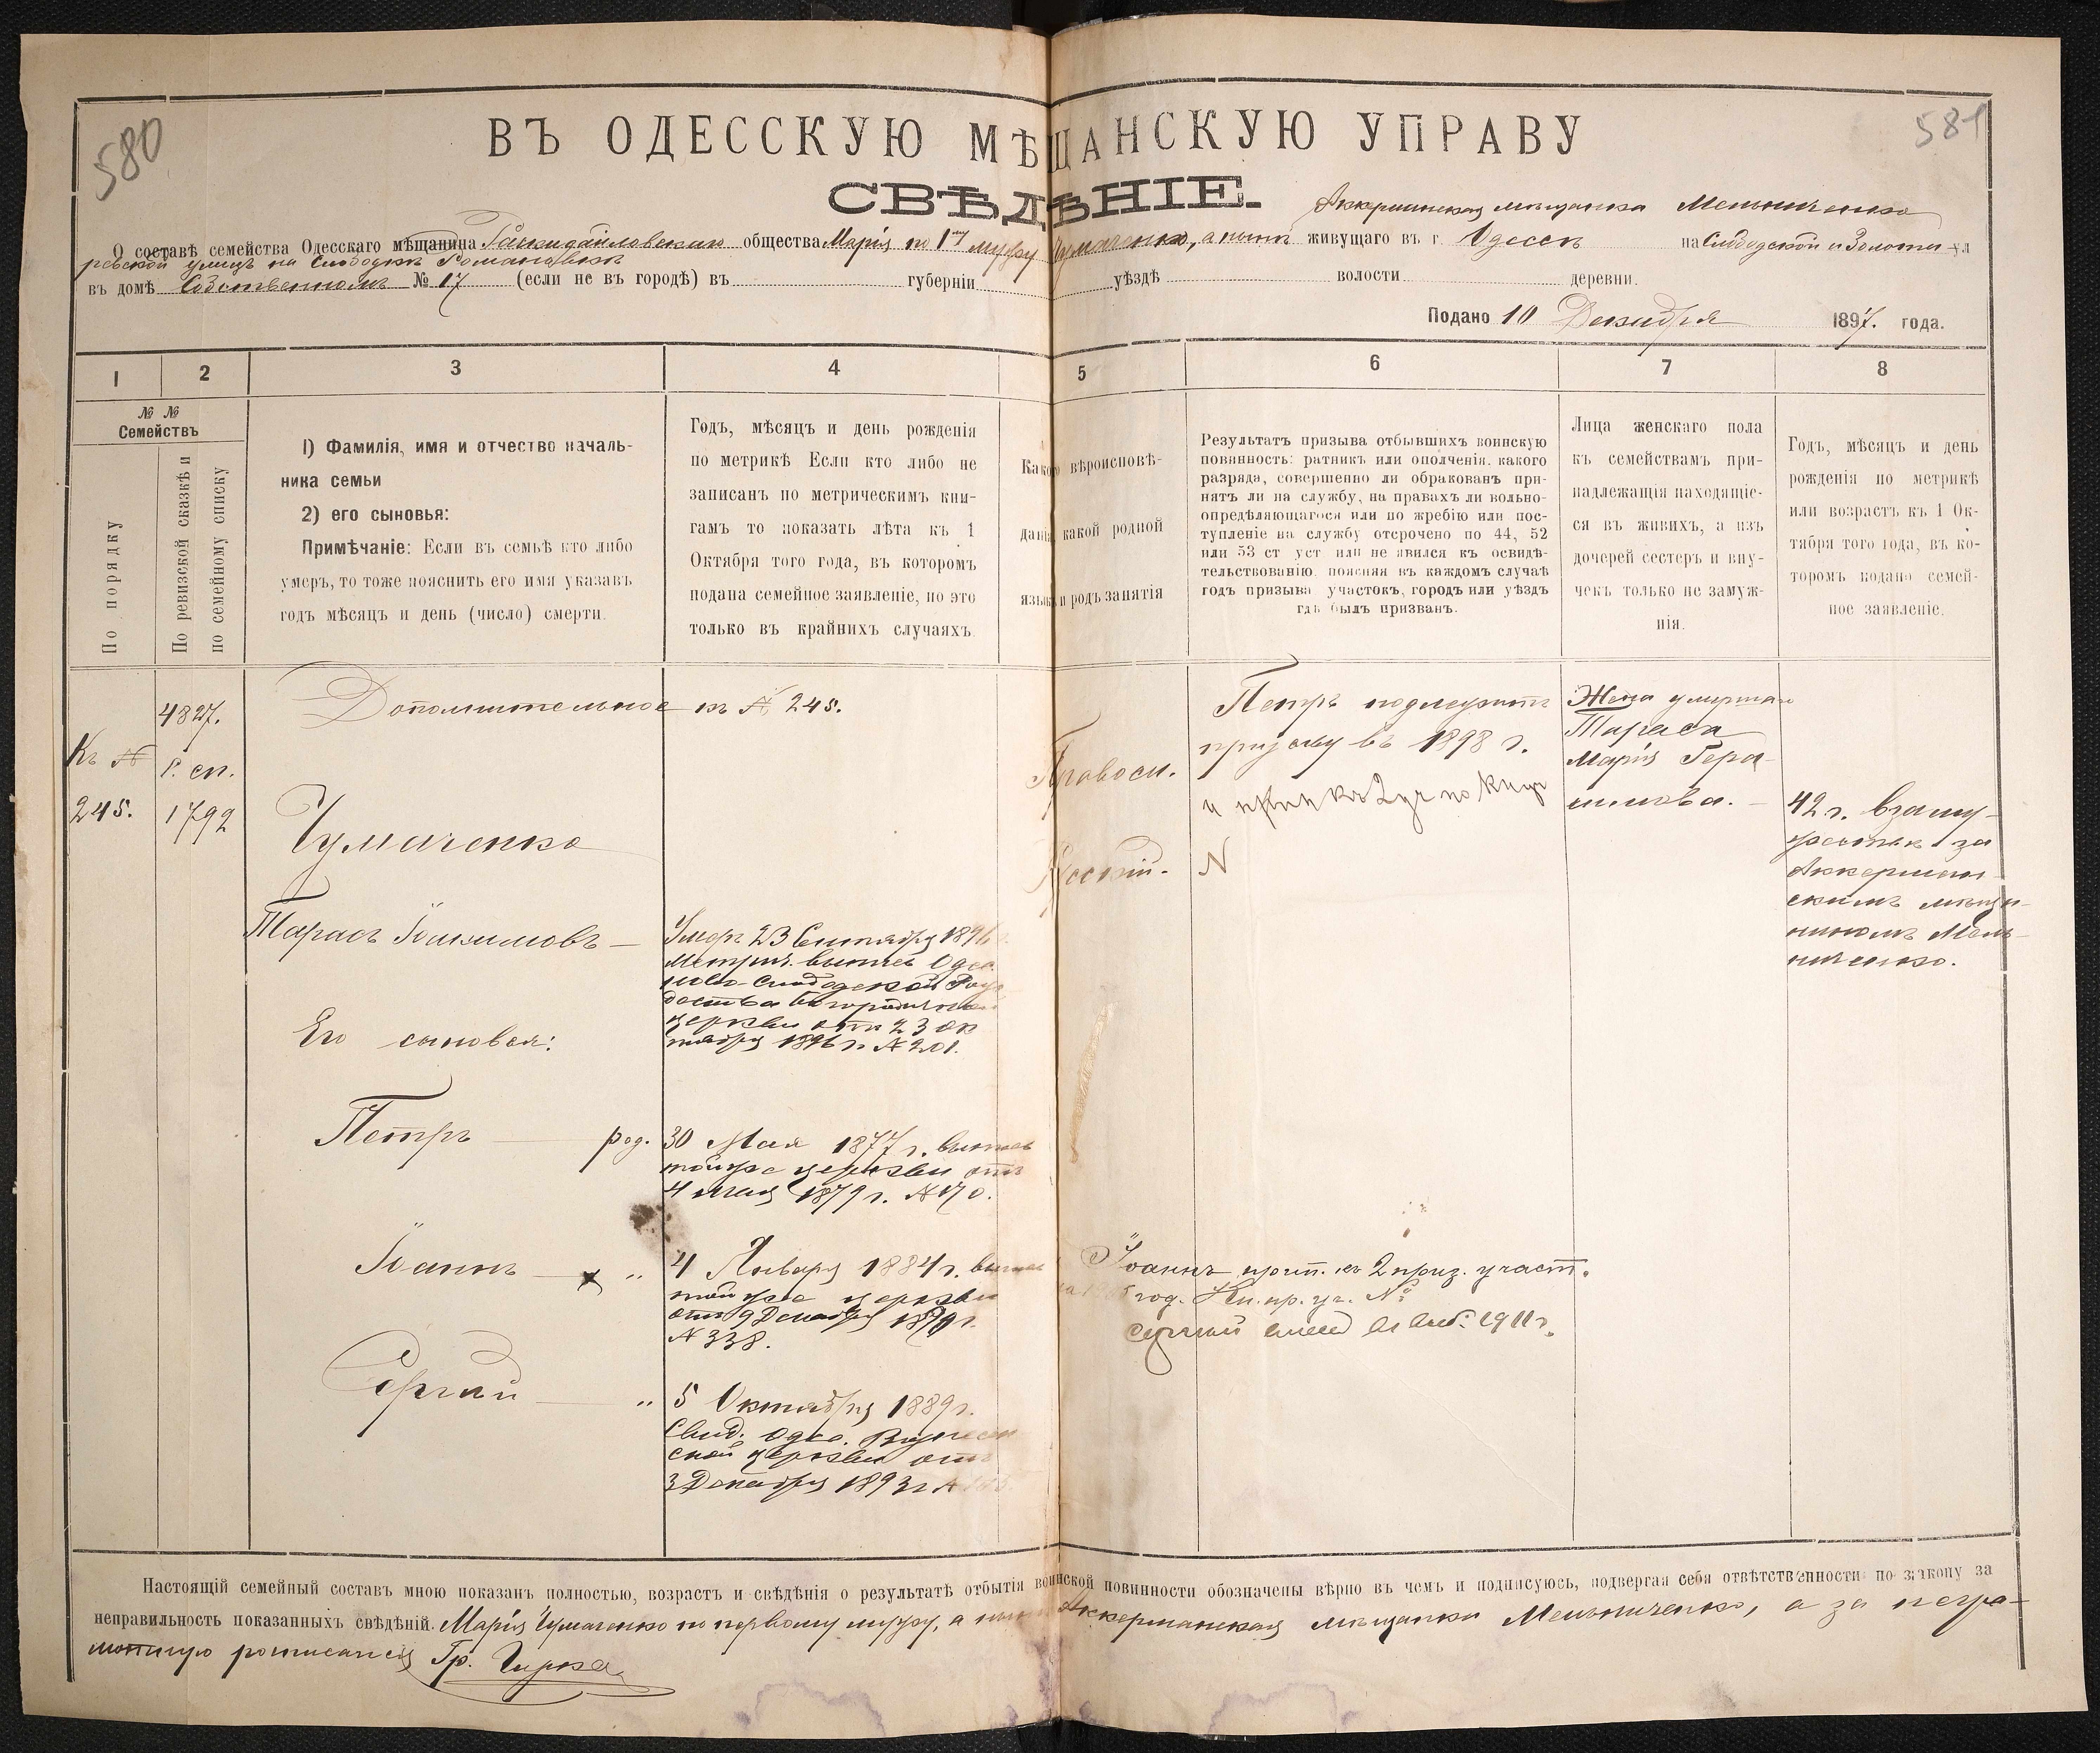 580
581
ВЪ ОДЕССКУЮ МѢЩАНСКУЮ УПРАВУ
СВѢДѢНІЕ.
Аккерманская мѣщанка Мельниченко
О составѣ семейства Одесскаго мѣщанина общества Марія по 1му мужу Чумаченко, а нынѣ живущаго въ г Одессѣ на Слободской и Золоти ул
ревской улицъ на Слободкѣ Романовкѣ
въ домѣ Собственномъ № 17 (если не въ городѣ) въ губерніи уѣздѣ волости деревни.
Подано 10 Декабря 1897. года.
1 2 3 4 5 6 7 8
№ №
Семействъ
По порядку
По ревизской сказкѣ и
по семейному списку
1) Фамилія, имя и отчество началь-
ника семьи
2) его сыновья:
Примѣчаніе: Если въ семьѣ кто либо
умеръ, то тоже пояснить его имя указавъ
годъ мѣсяцъ и день (число) смерти.
Годъ, мѣсяцъ и день рожденія
по метрикѣ Если кто либо не
записанъ по метрическимъ кни-
гамъ то показать лѣта къ 1
Октября того года, въ которомъ
подана семейное заявленіе, но это
только въ крайнихъ случаяхъ.
Какого вѣроисповѣ-
данія какой родной
языкъ и родъ занятія
Результатъ призыва отбывшихъ воинскую
повинность: ратникъ или ополченія. какого
разряда, совершенно ли обракованъ при-
нятъ ли на службу, на правахъ ли вольно-
опредѣляющагося или по жребію или пос-
тупленіе на службу отсрочено по 44, 52
или 53 ст уст или не явился къ освидѣ-
тельствованію. поясняя въ каждомъ случаѣ
годъ призыва участокъ, городъ или уѣздъ
гдѣ былъ призванъ.
Лица женскаго пола
къ семействамъ при-
надлежащія находящіе-
ся въ живихъ, а изъ
дочерей сестеръ и вну-
чекъ только не замуж-
нія.
Годъ, мѣсяцъ и день
рожденія по метрикѣ
или возрастъ къ 1 Ок-
тября того года, въ ко-
торомъ подано семей-
ное заявленіе.
Къ №
245.
4827.
Р. сп.
1792
Дополнительное къ № 245.
Чумаченко
Тарасъ Іоакимовъ —
Умеръ 23 Сентября 1896
Метрич. выпись Одес.
ново-Слободской Рож
дества Богородичной
церкви отъ 23 Ок
тября 1896 г. № 201.
Его сыновья:
Петръ — род.
30 Мая 1877 г. выпись
той же церкви отъ
4 мая 1879 г. № 170.
Іоаннъ — х "
4 Января 1884 г. выпись
той же церкви
отъ 9 Декабря
№ 338.
Сергѣй — "
5 Октября 1889 г.
Свид. Одес. Вознесен
ской церкви отъ
3 Декабря 1893 г №
Правосл.
Русскій.
Петръ подлежитъ
призыву въ 1898 г.
и прип къ 2 уч по
N
Іоаннъ прип. къ 2 приз. участ.
год. пр. уч. №
1911 г.
Жена умершаго
Тараса
Марія Гера-
симова. —
42 г. взаму-
жествѣ за
Аккерман-
скимъ мѣща-
ниномъ Мель-
ниченко.
Настоящій семейный составъ мною показанъ полностью, возрастъ и свѣдѣнія о результатѣ отбытія воинской повинности обозначены вѣрно въ чемъ и подписуюсь, подвергая себя отвѣтственности по закону за
неправильность показанныхъ свѣдѣній. Марія Чумаченко по первому мужу, а нынѣ Аккерманская мѣщанка Мельниченко, а за негра-
мотную росписался Гр.